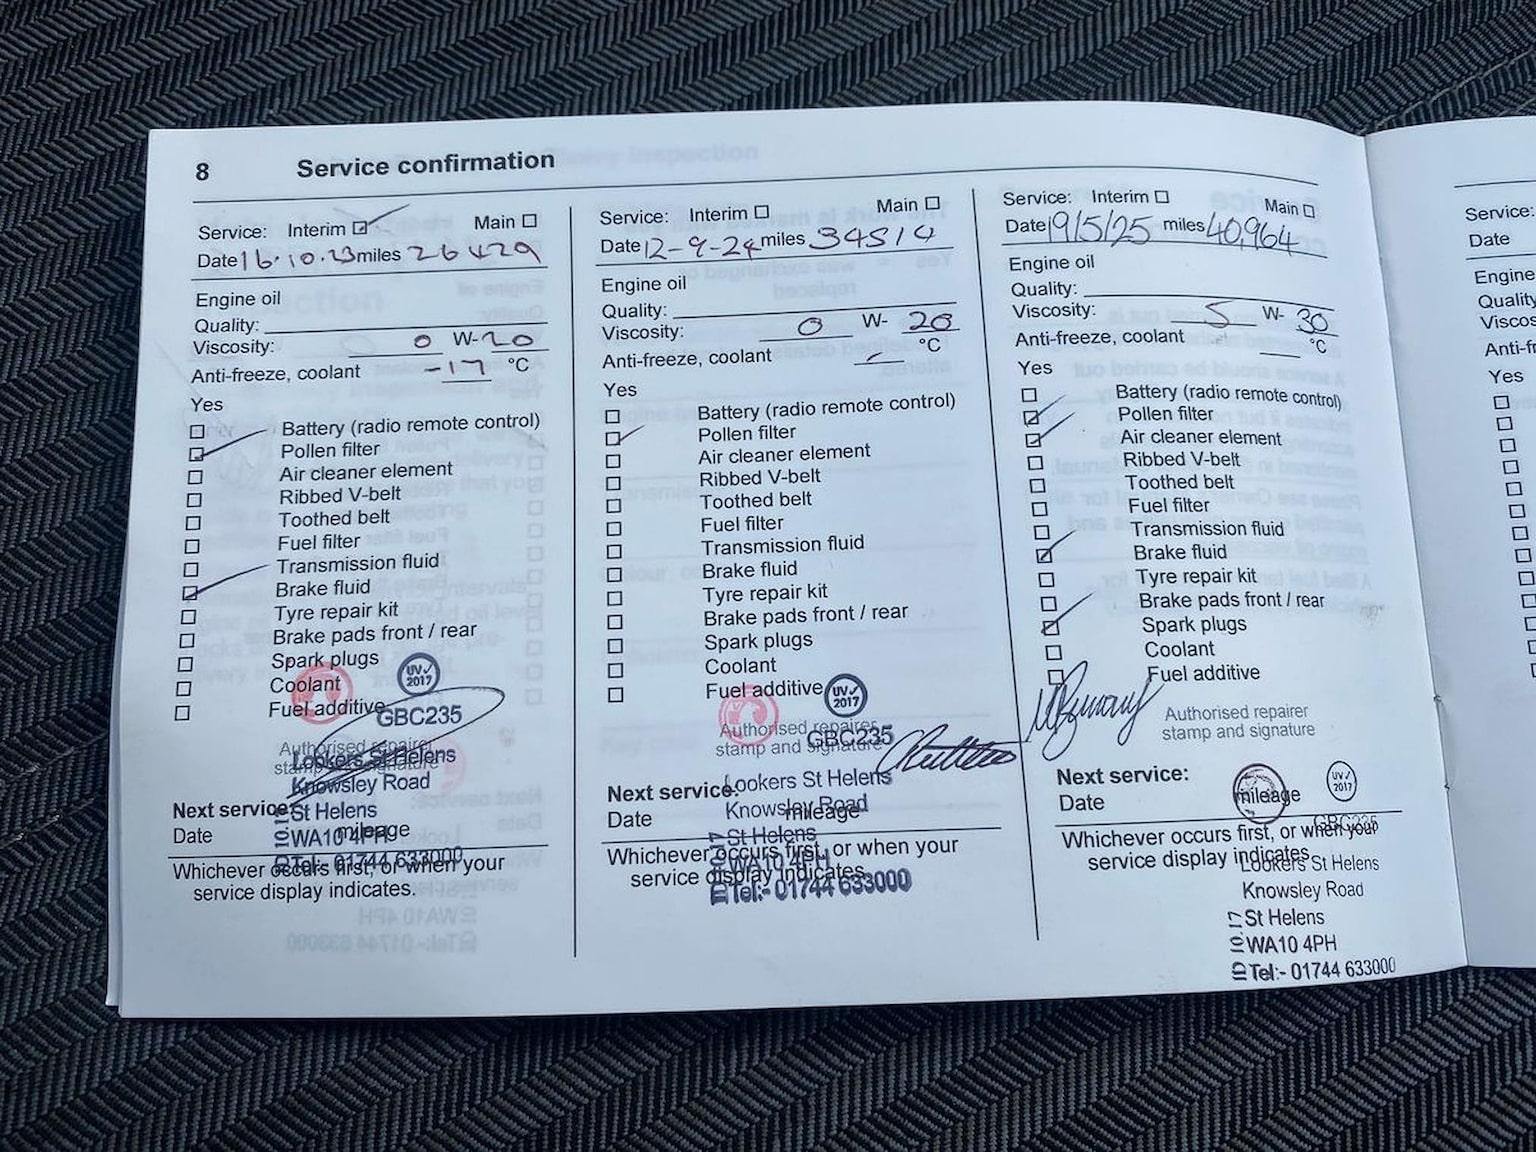 8 Service confirmation
Service: Interim Main
Date 16.10.23 miles 26429
Engine oil
Quality:
Viscosity: 0 W- 20
Anti-freeze, coolant -17 °C
Yes
Battery (radio remote control)
Pollen filter
Air cleaner element
Ribbed V-belt
Toothed belt
Fuel filter
Transmission fluid
Brake fluid
Tyre repair kit
Brake pads front / rear
Spark plugs
Coolant
Fuel additive
UV
2017
GBC235
Authorised repairer
stamp and signature
Lookers St Helens
Knowsley Road
St Helens
WA10 4PH
Tel:- 01744 633000
ID 10.17
Next service:
Date mileage
Whichever occurs first, or when your
service display indicates.
Service: Interim Main
Date 12-9-24 miles 34514
Engine oil
Quality:
Viscosity: 0 W- 20
Anti-freeze, coolant °C
Yes
Battery (radio remote control)
Pollen filter
Air cleaner element
Ribbed V-belt
Toothed belt
Fuel filter
Transmission fluid
Brake fluid
Tyre repair kit
Brake pads front / rear
Spark plugs
Coolant
Fuel additive
UV
2017
GBC235
Authorised repairer
stamp and signature
Lookers St Helens
Knowsley Road
St Helens
WA10 4PH
Tel:- 01744 633000
Next service:
Date mileage
Whichever occurs first, or when your
service display indicates.
Service: Interim Main
Date 19/5/25 miles 40,964
Engine oil
Quality:
Viscosity: 5 W- 30
Anti-freeze, coolant °C
Yes
Battery (radio remote control)
Pollen filter
Air cleaner element
Ribbed V-belt
Toothed belt
Fuel filter
Transmission fluid
Brake fluid
Tyre repair kit
Brake pads front / rear
Spark plugs
Coolant
Fuel additive
Authorised repairer
stamp and signature
Next service:
Date mileage
UV
2017
GBC235
Whichever occurs first, or when your
service display indicates
Lookers St Helens
Knowsley Road
St Helens
WA10 4PH
Tel:- 01744 633000
ID 10.17
Service:
Date
Engine
Quality
Viscos
Anti-fr
Yes